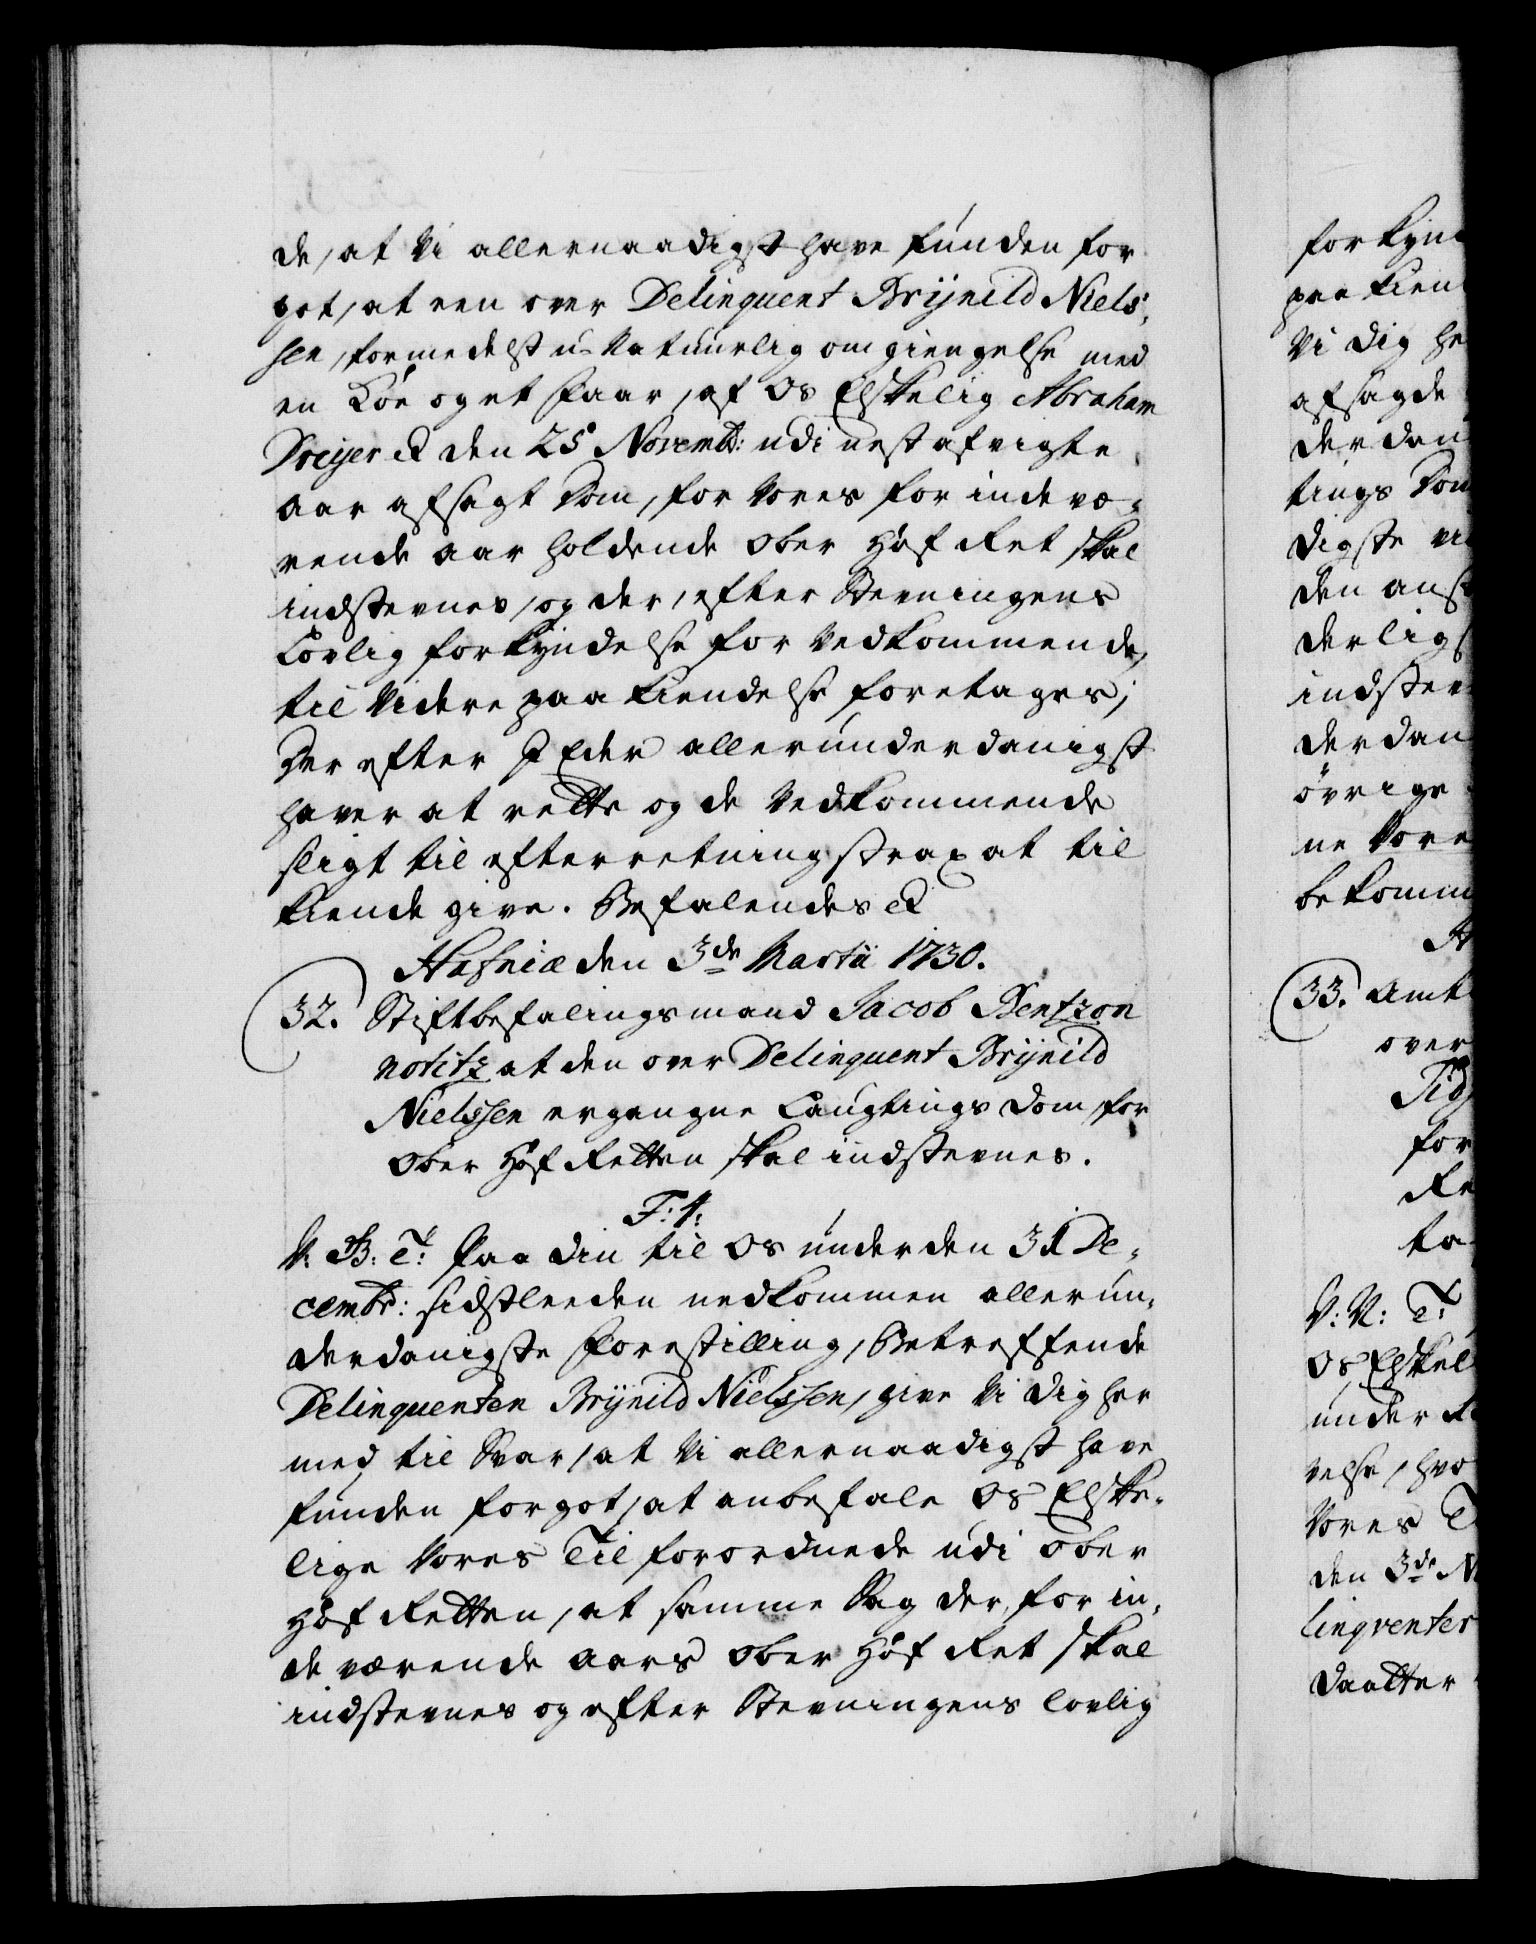 de, at Vi allernaadigst have funden for
got, at een over Delinquent Brÿnild Niels-
sen, formedelst u-Natuurlig omgiengelse med
en Koe og et Faar, af Os Elskelig Abraham
Dreÿer &c. den 25 Novembr: udi nest afvigte
Aar afsagt Dom, for Vores for indevæ-
rende Aar holdende Ober Hof Ret skal
indstevnes, og der, efter Stevningens
Lovlig forkÿndelse for Vedkommende,
til Videre paakiendelse foretages;
Der efter I Eder allerunderdanigst
haver at rette og de Vedkommende
sligt til efterretning strax at til
kiende give. Befalendes &c.
Hafniæ den 3de Martii 1730.
32. Stiftbefalingsmand Jacob Bentzon
notitz at den over Delinquent Brÿnild
Nielssen ergangne Laugtings Dom, for
Ober Hof Retten skal indstevnes.
F: 4:
V: B: T: Paa Din til Os under den 31 De-
cembr: sidstleeden nedkommen allerun-
derdanigste Forestilling, Betreffende
Delinquenten Brÿnild Nielssen, give Vi dig her
med til Svar, at Vi allernaadigst have
funden for got, at anbefale Os Elske-
lige Vores Tilforordnede udi Ober
Hof Retten, at samme Sag der, for in-
deværende Aars Ober Hof Ret skal
indstevnes og efter Stevningens lovlig
forkÿn
paakien
Vi dig he
afsagde
derdan
tings Dom
digste
den
derligs
indstev
derdan
övrige
ne Vore
bekomm
33. Amt
over
for
Re
ta
V: V: T:
Os Elskel
under
velse, hvo
Vores T
den 3de M
linqventer
Daatter